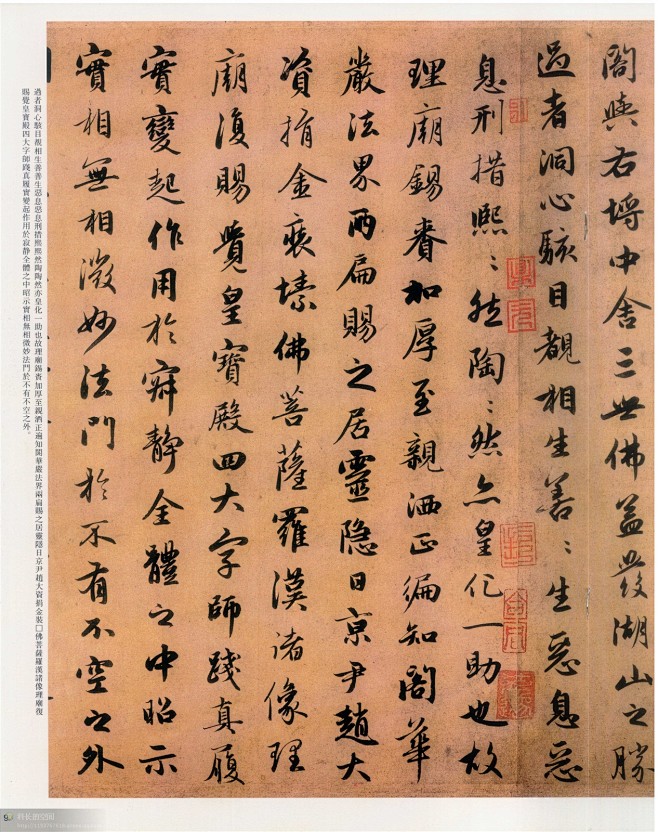 閣與右塔中舍三世佛益發湖山之勝
過者洞心駭目覩相生善〻生惡息惡
息刑措熙〻然陶〻然亦皇化一助也故
理廟錫賚加厚至親洒正徧知閣華
嚴法界兩扁賜之居靈隐日京尹趙大
資捐金裝塐佛菩薩羅漢諸像理
廟復賜覺皇寶殿四大字師踐真履
實變起作用於寂靜全體之中昭示
實相無相微妙法門於不有不空之外
過者洞心駭目覩相生善善生惡息惡息刑措熙熙然陶陶然亦皇化一助也故理廟錫賚加厚至親洒正遍知閣華嚴法界兩扁賜之居靈隱日京尹趙大資捐金裝□佛菩薩羅漢諸像理廟復
賜覺皇寶殿四大字師踐真履實變起作用於寂靜全體之中昭示實相無相微妙法門於不有不空之外。